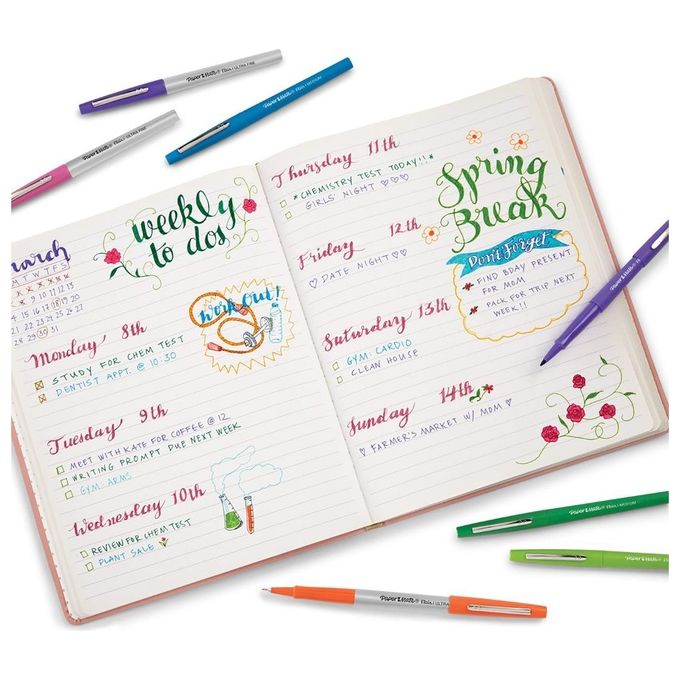 weekly
to dos
march
M T W T F S
Monday 8th
STUDY FOR CHEM TEST
DENTIST APPT. @ 10:30
work out!
Tuesday 9th
MEET WITH KATE FOR COFFEE @ 12
WRITING PROMPT DUE NEXT WEEK
GYM: ARMS
Wednesday 10th
REVIEW FOR CHEM TEST
PLANT SALE
Thursday 11th
*CHEMISTRY TEST TODAY!!*
GIRLS' NIGHT ♡♡♡
Friday 12th
♡ DATE NIGHT ♡♡
Saturday 13th
GYM: CARDIO
CLEAN HOUSE
Sunday 14th
♡ FARMER'S MARKET W/ MOM ♡
Spring
Break
Don't Forget
FIND BDAY PRESENT
FOR MOM
PACK FOR TRIP NEXT
WEEK!!
PAPER MATE® FLAIR ULTRA FINE
PAPER MATE® FLAIR MEDIUM
PAPER MATE® FLAIR ULTRA FINE
PAPER MATE® FLAIR
PAPER MATE® FLAIR MEDIUM
PAPER MATE® FLAIR MEDIUM
PAPER MATE® FLAIR ULTRA